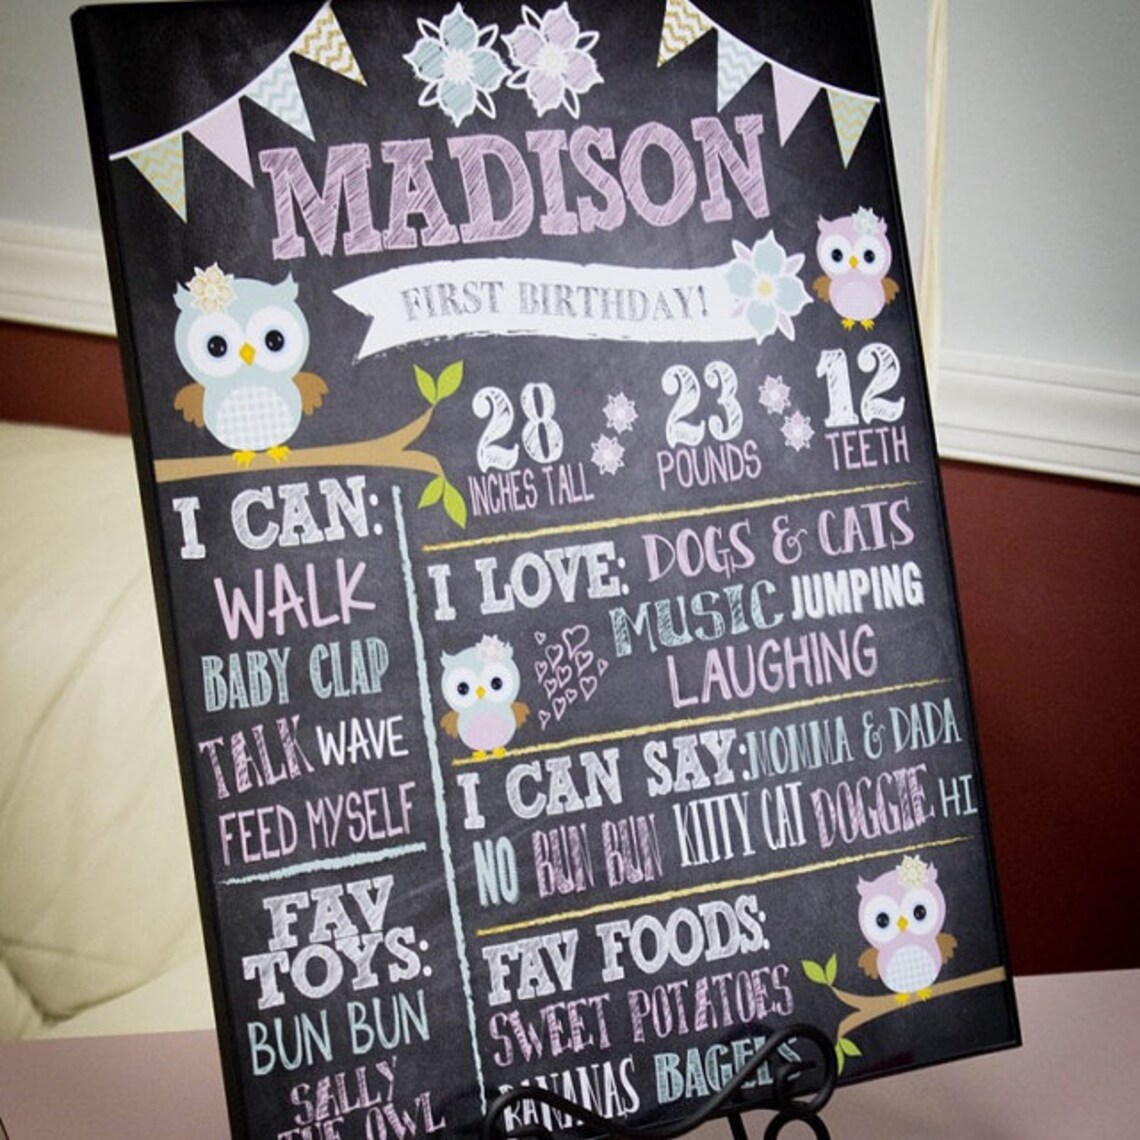 MADISON
FIRST BIRTHDAY!
28
INCHES TALL
23
POUNDS
12
TEETH
I CAN:
WALK
BABY CLAP
TALK WAVE
FEED MYSELF
FAV
TOYS:
BUN BUN
SALLY
THE OWL
I LOVE: DOGS & CATS
MUSIC JUMPING
LAUGHING
I CAN SAY: MOMMA & DADA
NO BUN BUN KITTY CAT DOGGIE HI
FAV FOODS:
SWEET POTATOES
BANANAS BAGELS